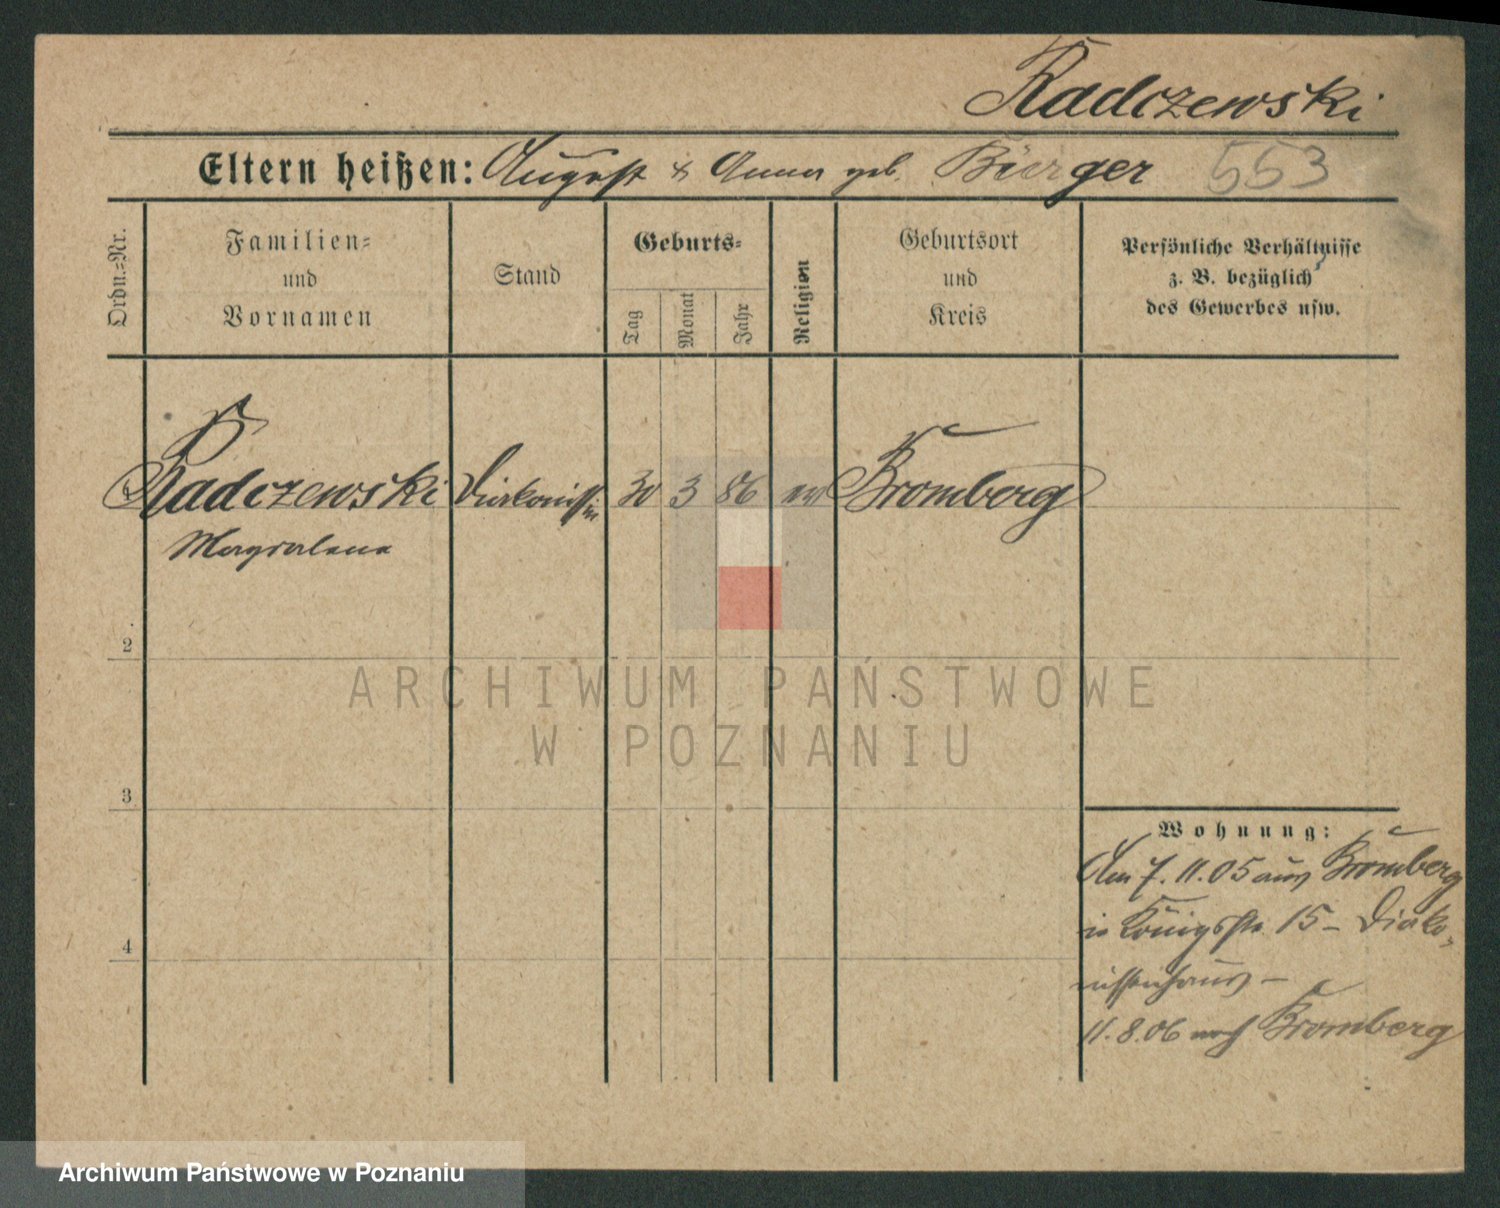 Radczewski
Eltern heißen: August & Anna geb. Bürger 553
Ordn.-Nr.
Familien-
und
Vornamen
Stand
Geburts-
Tag
Monat
Jahr
Religion
Geburtsort
und
Kreis
Persönliche Verhältnisse
z. B. bezüglich
des Gewerbes usw.
Radczewski Diakonissin 30 3 86 ev Bromberg
Magdalena
2
3
4
ARCHIWUM PAŃSTWOWE
W POZNANIU
Wohnung:
Am 7.11.05 aus Bromberg
in Königsstr. 15 – Diako-
nissenhaus –
11.8.06 nach Bromberg
Archiwum Państwowe w Poznaniu